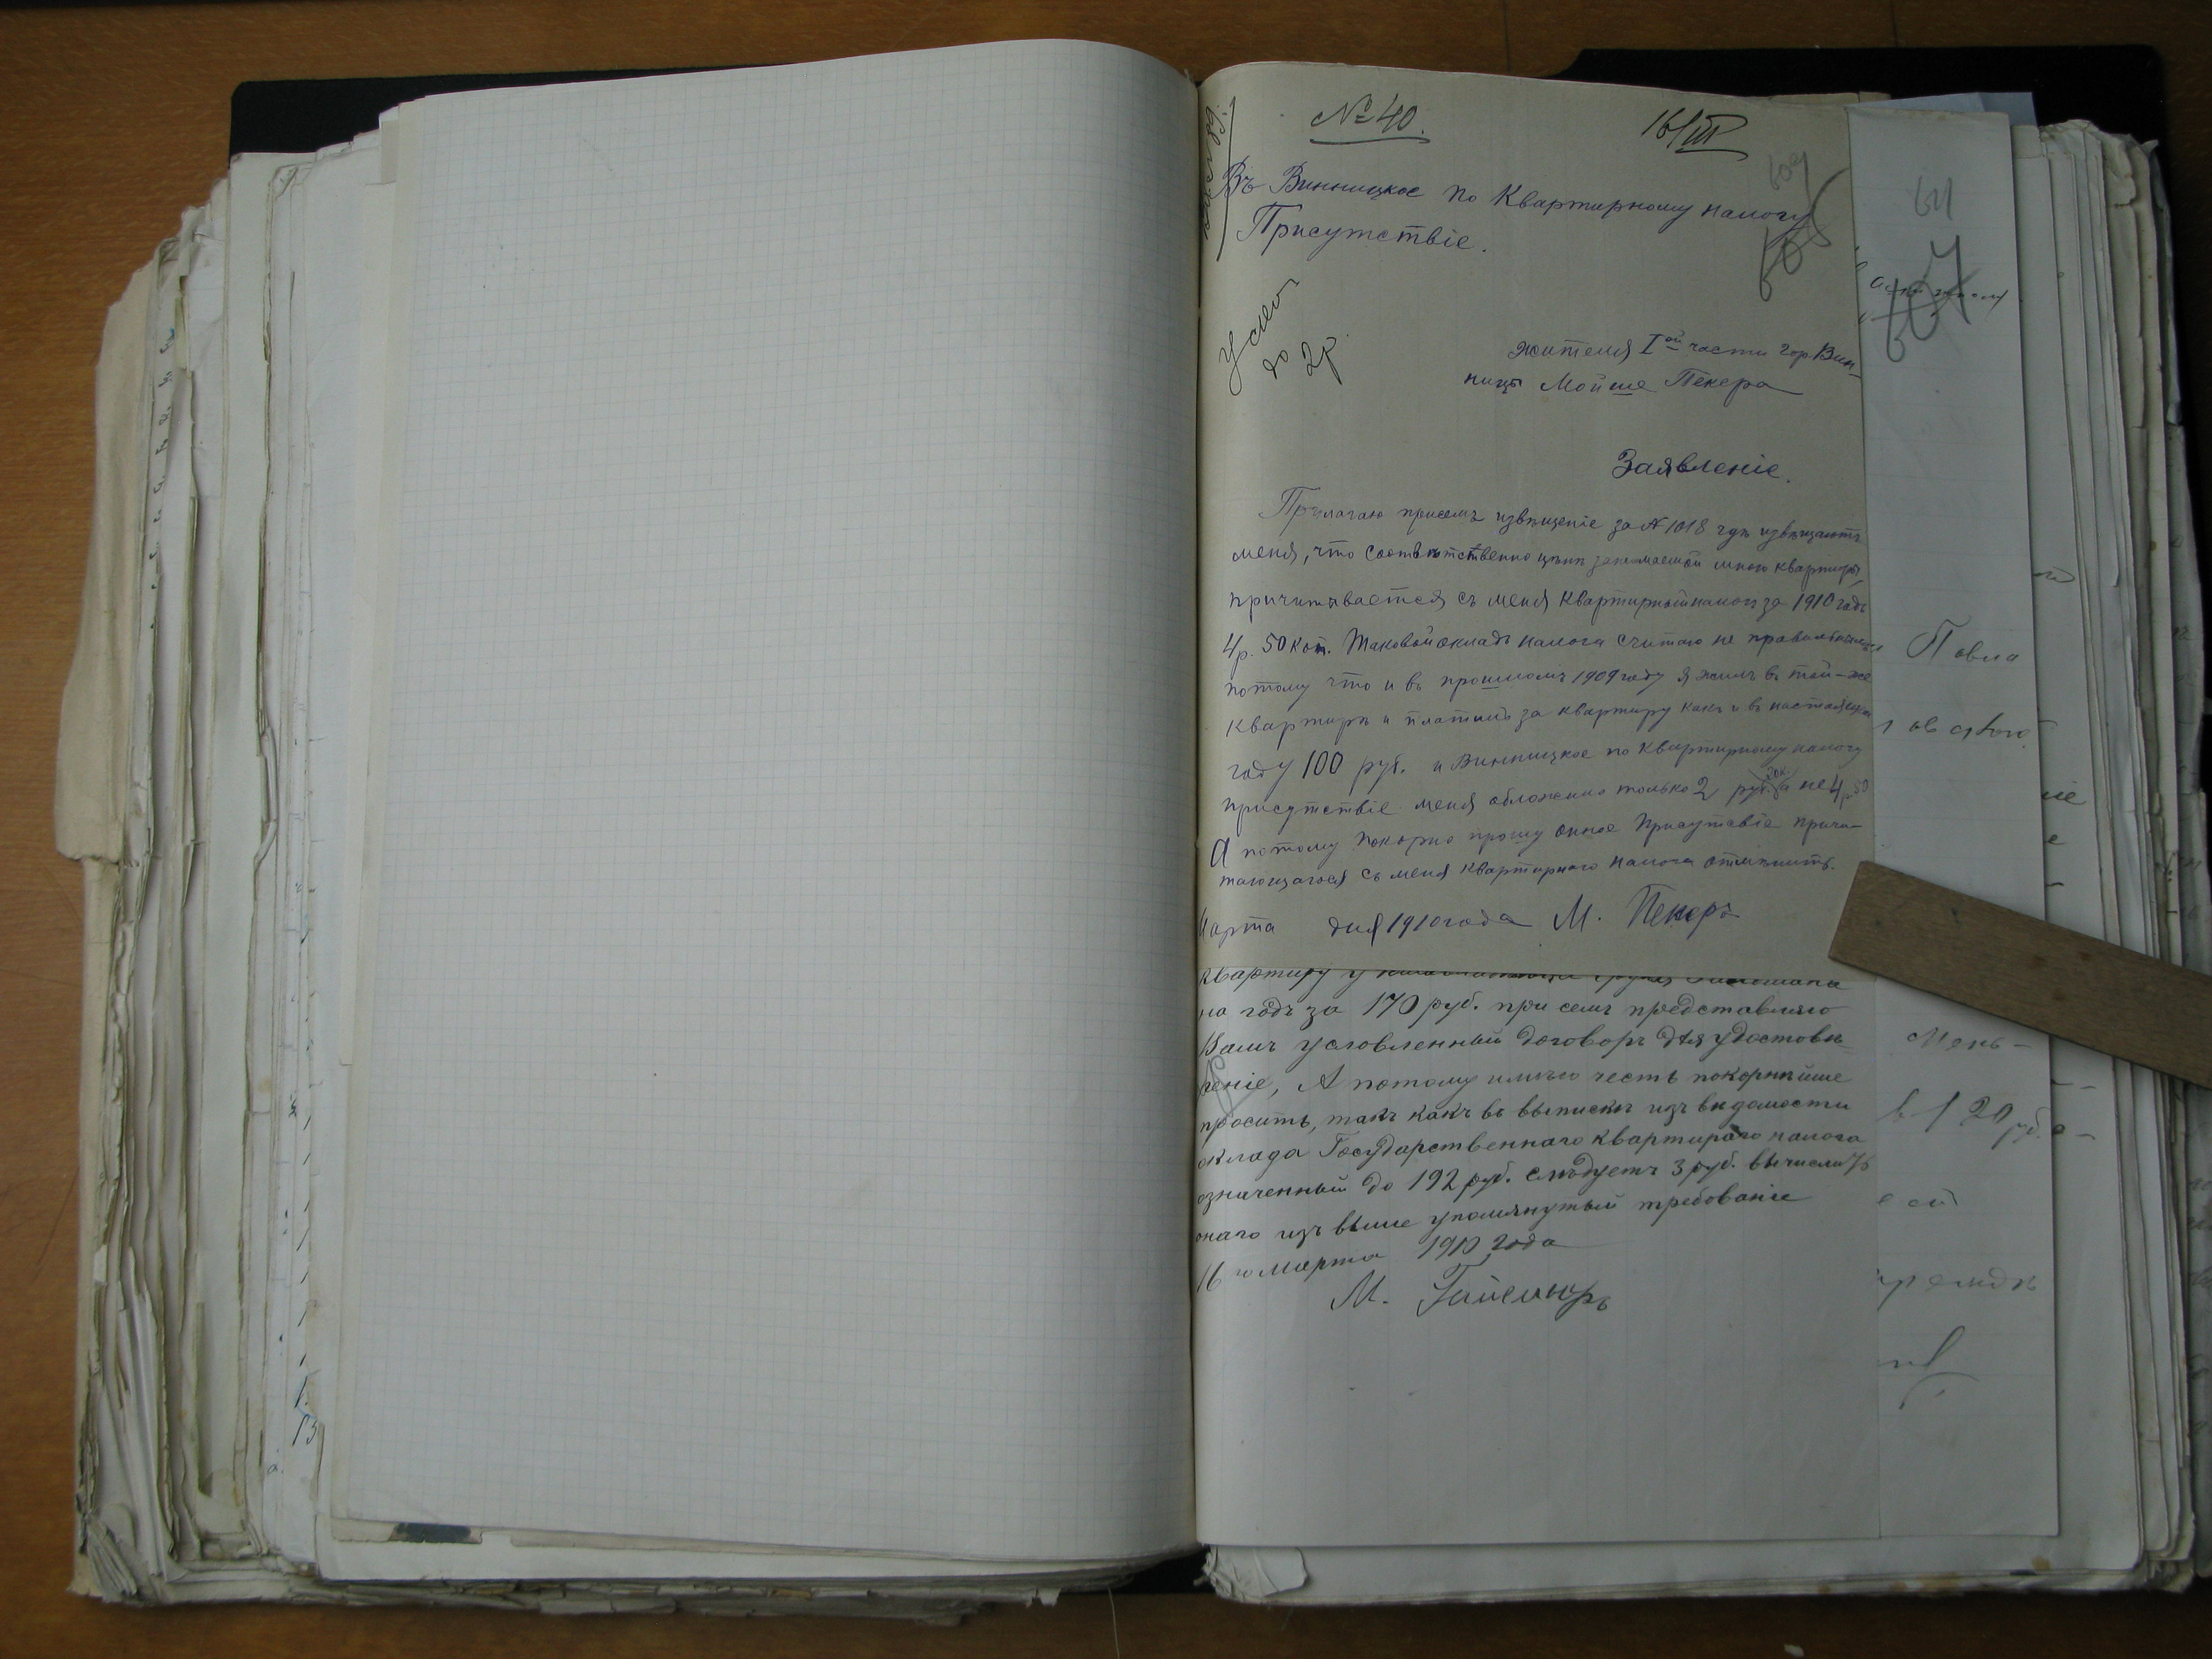 № 40.
16/III
609
608
Въ Винницкое по Квартирному налогу
Присутствіе.
до 2 р.
жителя Iой части гор. Вин-
ницы Мойше Пекера
Заявленіе.
Прилагаю присемъ извѣщеніе за № 1018 гдѣ извѣщаютъ
меня, что соотвѣтственно цѣнѣ занимаемой мною квартиры,
причитывается съ меня квартирный налогъ за 1910 годъ
4 р. 50 коп. Таковой окладъ налога считаю не правильнымъ
потому что и въ прошломъ 1909 году я жилъ въ той-же
квартирѣ и платилъ за квартиру какъ и въ настоящемъ
году 100 руб. и Винницкое по квартирному налогу
присутствіе меня обложило только 2 руб. а не 4 р. 50
А потому покорно прошу оное Присутсвіе причи-
тающагося съ меня квартирного налога отмѣнить.
Марта дня 1910 года М. Пекеръ
квартиру у
на годъ за 170 руб. при семъ представляю
Вамъ условленный договоръ для удостовѣ-
реніе, А потому имѣю честь покорнѣйше
просить, такъ какъ въ выпискѣ изъ вѣдомости
оклада Государственнаго квартирнаго налога
означенный до 192 руб. слѣдуетъ 3 руб. вычислить
онаго изъ выше упомянутый требованіе
16 го Марта 1910 года
М.
611
607
Павла
Мень-
в 120 руб.